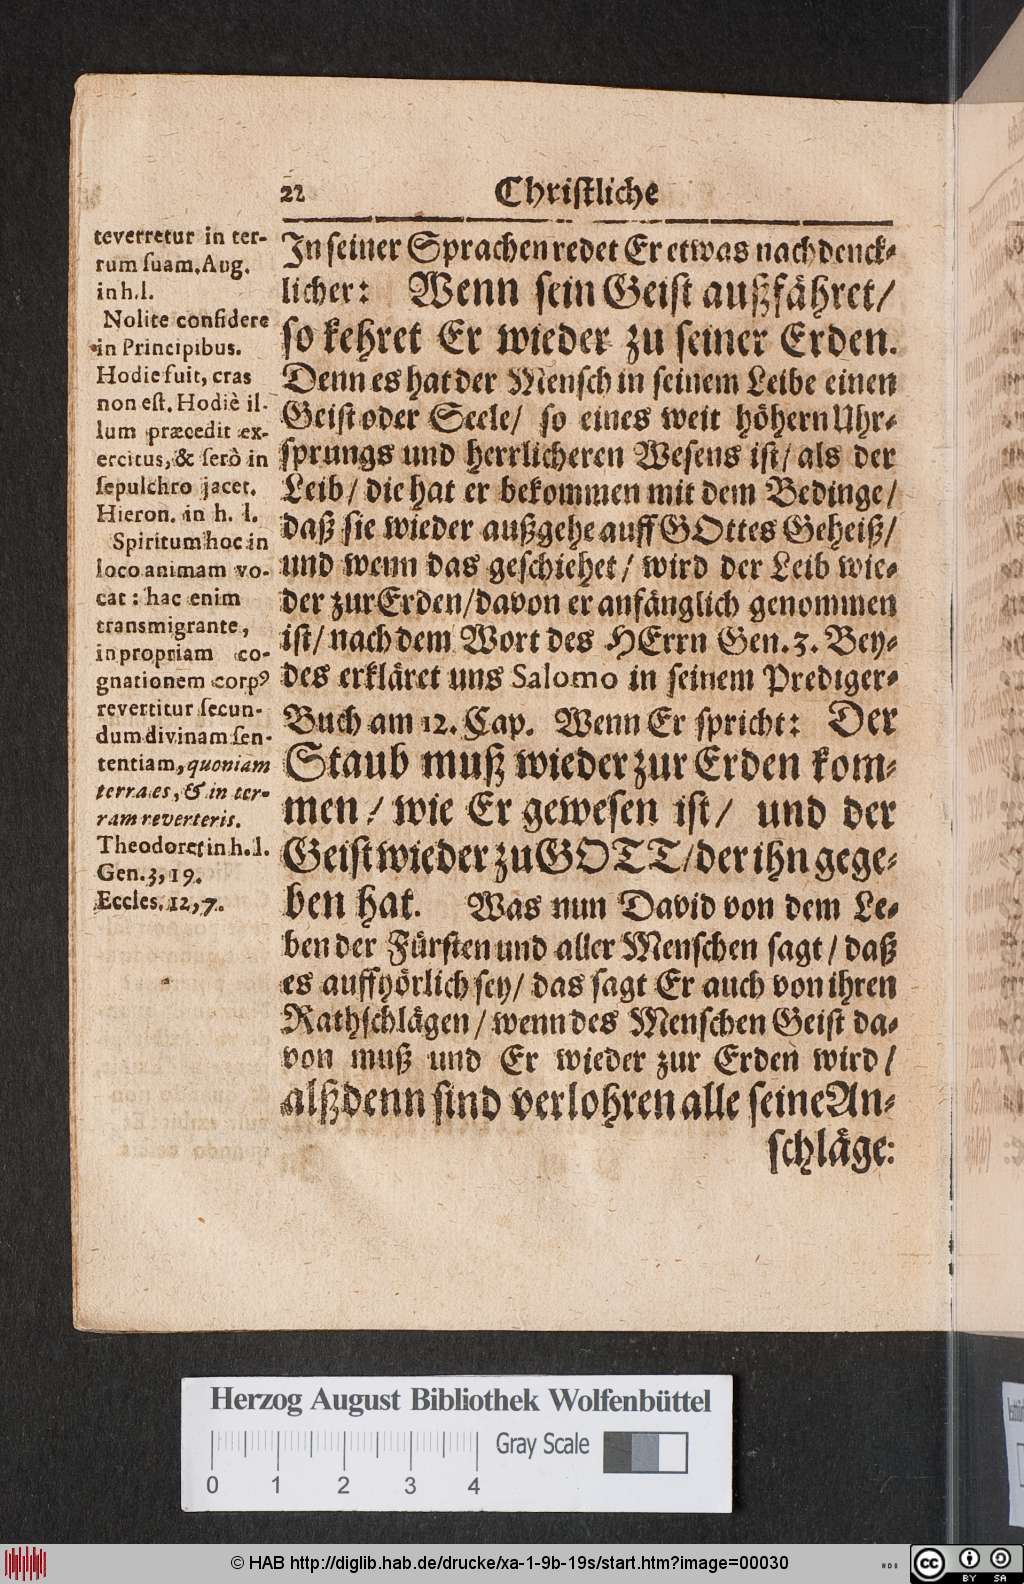 22 Christliche
teverretur in ter-
rum suam. Aug.
in h. l.
Nolite confidere
in Principibus.
Hodie fuit, cras
non est. Hodiè il-
lum præcedit ex-
ercitus, & serò in
sepulchro jacet.
Hieron. in h. l.
Spiritum hoc in
loco animam vo-
cat: hac enim
transmigrante,
in propriam co-
gnationem corpꝰ
revertitur secun-
dum divinam sen-
tentiam, quoniam
terra es, & in ter-
ram reverteris.
Theodoret in h. l.
Gen. 3, 19.
Eccles. 12, 7.
In seiner Sprachen redet Er etwas nachdenck-
licher: Wenn sein Geist außfähret/
so kehret Er wieder zu seiner Erden.
Denn es hat der Mensch in seinem Leibe einen
Geist oder Seele/ so eines weit höhern Uhr-
sprungs und herrlicheren Wesens ist/ als der
Leib/ die hat er bekommen mit dem Bedinge/
daß sie wieder außgehe auff GOttes Geheiß/
und wenn das geschiehet/ wird der Leib wie-
der zur Erden/ davon er anfänglich genommen
ist/ nach dem Wort des HErrn Gen. 3. Bey-
des erkläret uns Salomo in seinem Prediger-
Buch am 12. Cap. Wenn Er spricht: Der
Staub muß wieder zur Erden kom-
men/ wie Er gewesen ist/ und der
Geist wieder zu GOTT/ der ihn gege-
ben hat. Was nun David von dem Le-
ben der Fürsten und aller Menschen sagt/ daß
es auffhörlich sey/ das sagt Er auch von ihren
Rathschlägen/ wenn des Menschen Geist da-
von muß und Er wieder zur Erden wird/
alßdenn sind verlohren alle seine An-
schläge:
Herzog August Bibliothek Wolfenbüttel
Gray Scale
0 1 2 3 4
© HAB http://diglib.hab.de/drucke/xa-1-9b-19s/start.htm?image=00030
cc BY SA